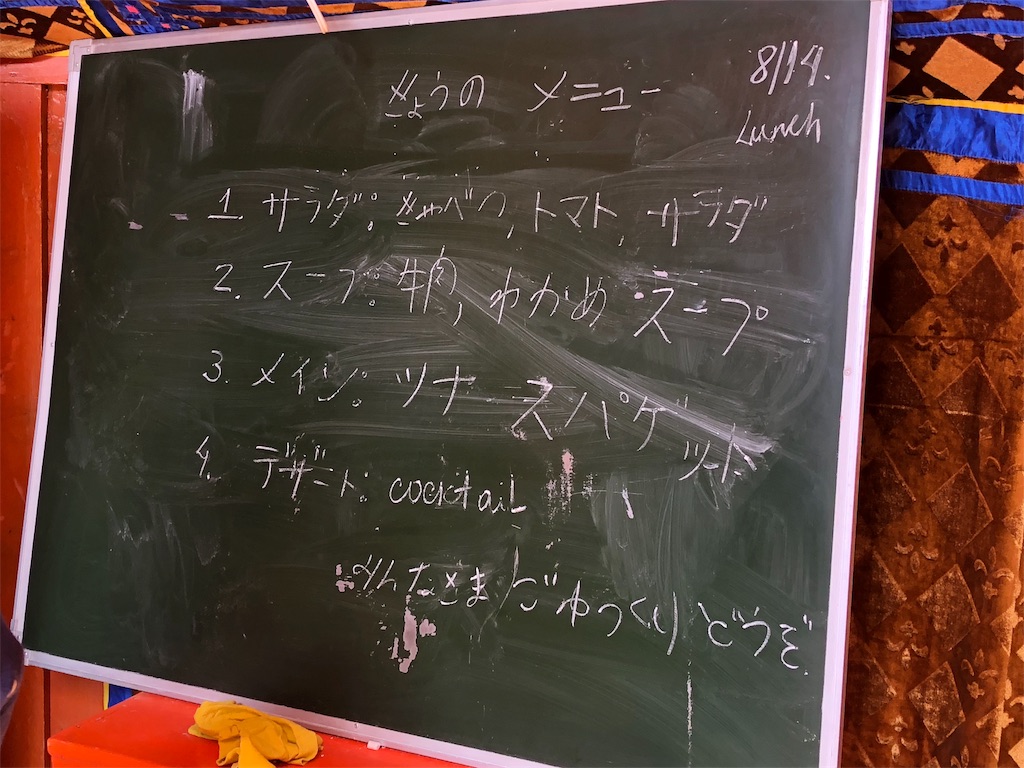 きょうの メニュー
8/14.
Lunch
1. サラダ。きゃべつ,トマト,サラダ
2. スープ。牛肉,わかめ スープ
3. メイン。ツナ スパゲッット
4. デザート: cocktaiL
みんなさま ごゆっくり どうぞ